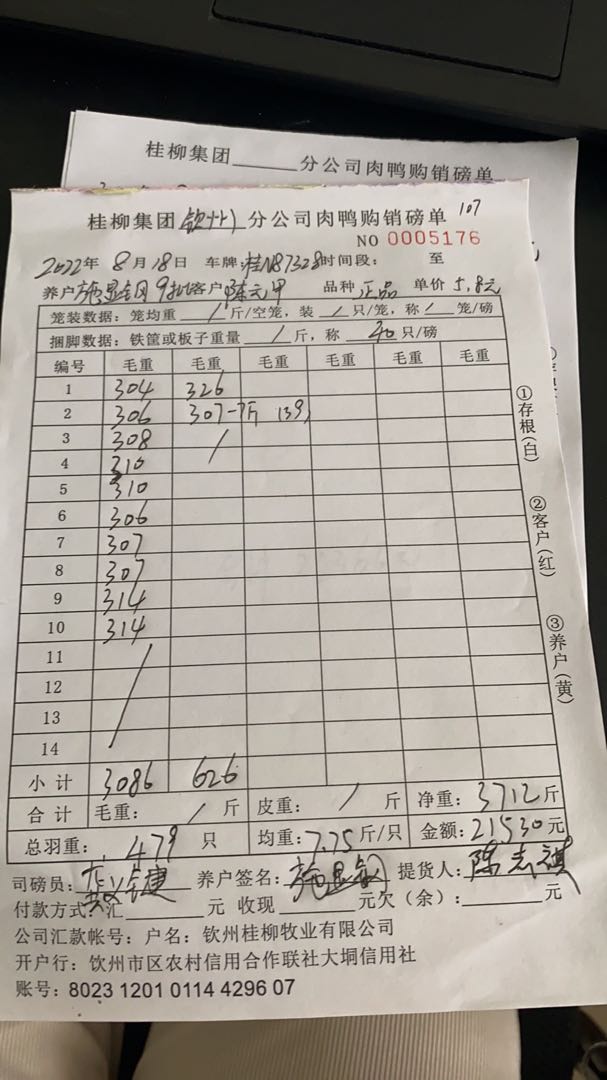 桂柳集团 分公司肉鸭购销磅单
桂柳集团 钦州 分公司肉鸭购销磅单 107
NO 0005176
2022年 8月18日 车牌:桂N87328 时间段: 至
养户 客户 陈元甲 品种 正品 单价 5.8元
笼装数据: 笼均重 / 斤/空笼, 装 / 只/笼, 称 / 笼/磅
捆脚数据: 铁筐或板子重量 / 斤, 称 40 只/磅
编号 毛重 毛重 毛重 毛重 毛重 毛重
1 304 326
2 306 307-7斤 (39)
3 308 /
4 310
5 310
6 306
7 307
8 307
9 314
10 314
11
12
13
14
小计 3086 626
合计 毛重: / 斤 皮重: / 斤 净重: 3712斤
总羽重: 479 只 均重: 7.75斤/只 金额: 21530元
司磅员: 养户签名: 施显钢 提货人: 陈志祺
付款方式: 汇 元 收现 元欠(余): 元
公司汇款帐号: 户名: 钦州桂柳牧业有限公司
开户行: 饮州市区农村信用合作联社大垌信用社
账号: 8023 1201 0114 4296 07
①存根(白)
②客户(红)
③养户(黄)